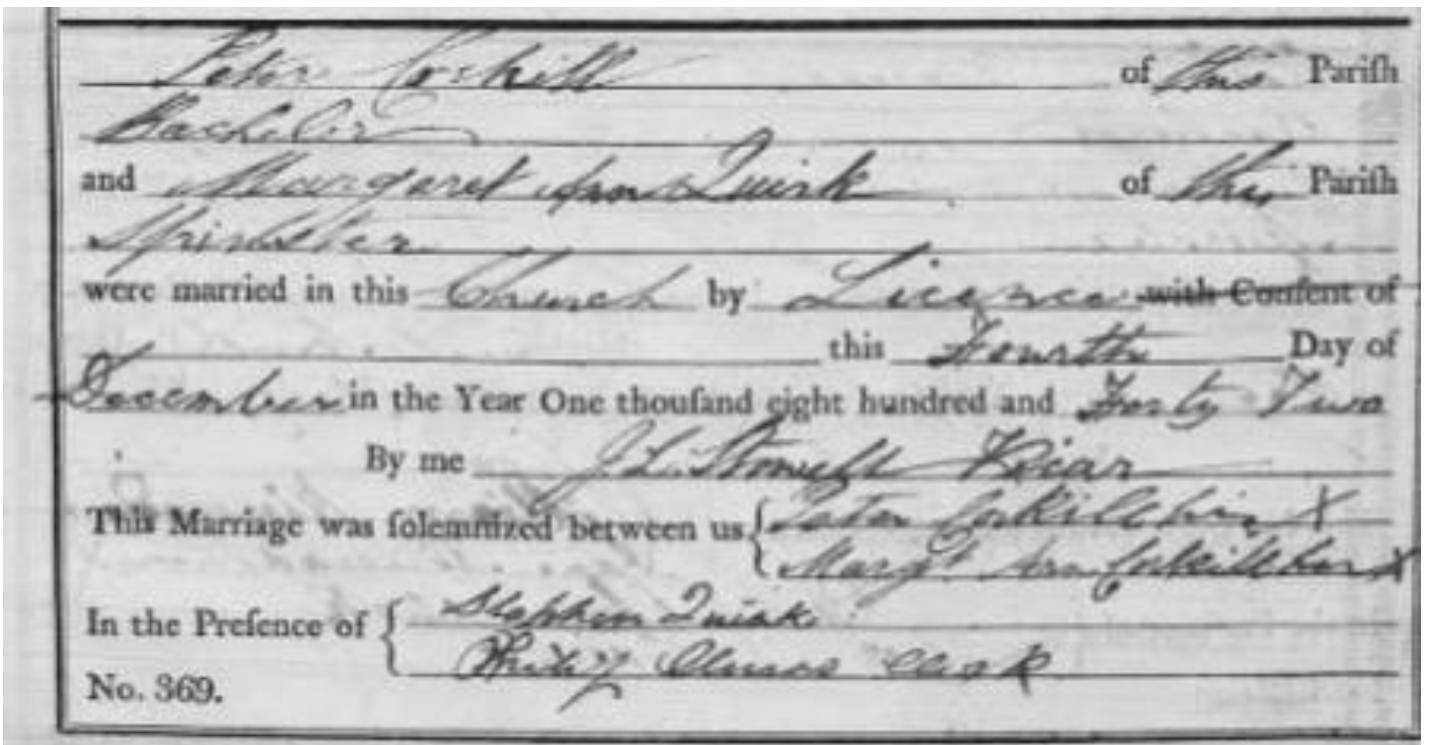 Peter Corkill of this Pariſh
Bachelor
and Margaret Ann Quirk of this Pariſh
Spinster
were married in this Church by Licence with Conſent of
this Fourth Day of
December in the Year One thouſand eight hundred and Forty Two
By me J L Stowell Vicar
This Marriage was ſolemnized between us Peter Corkill his X
Margt Ann Corkill her X
In the Preſence of Stephen Quirk
Philip Clerk
No. 369.